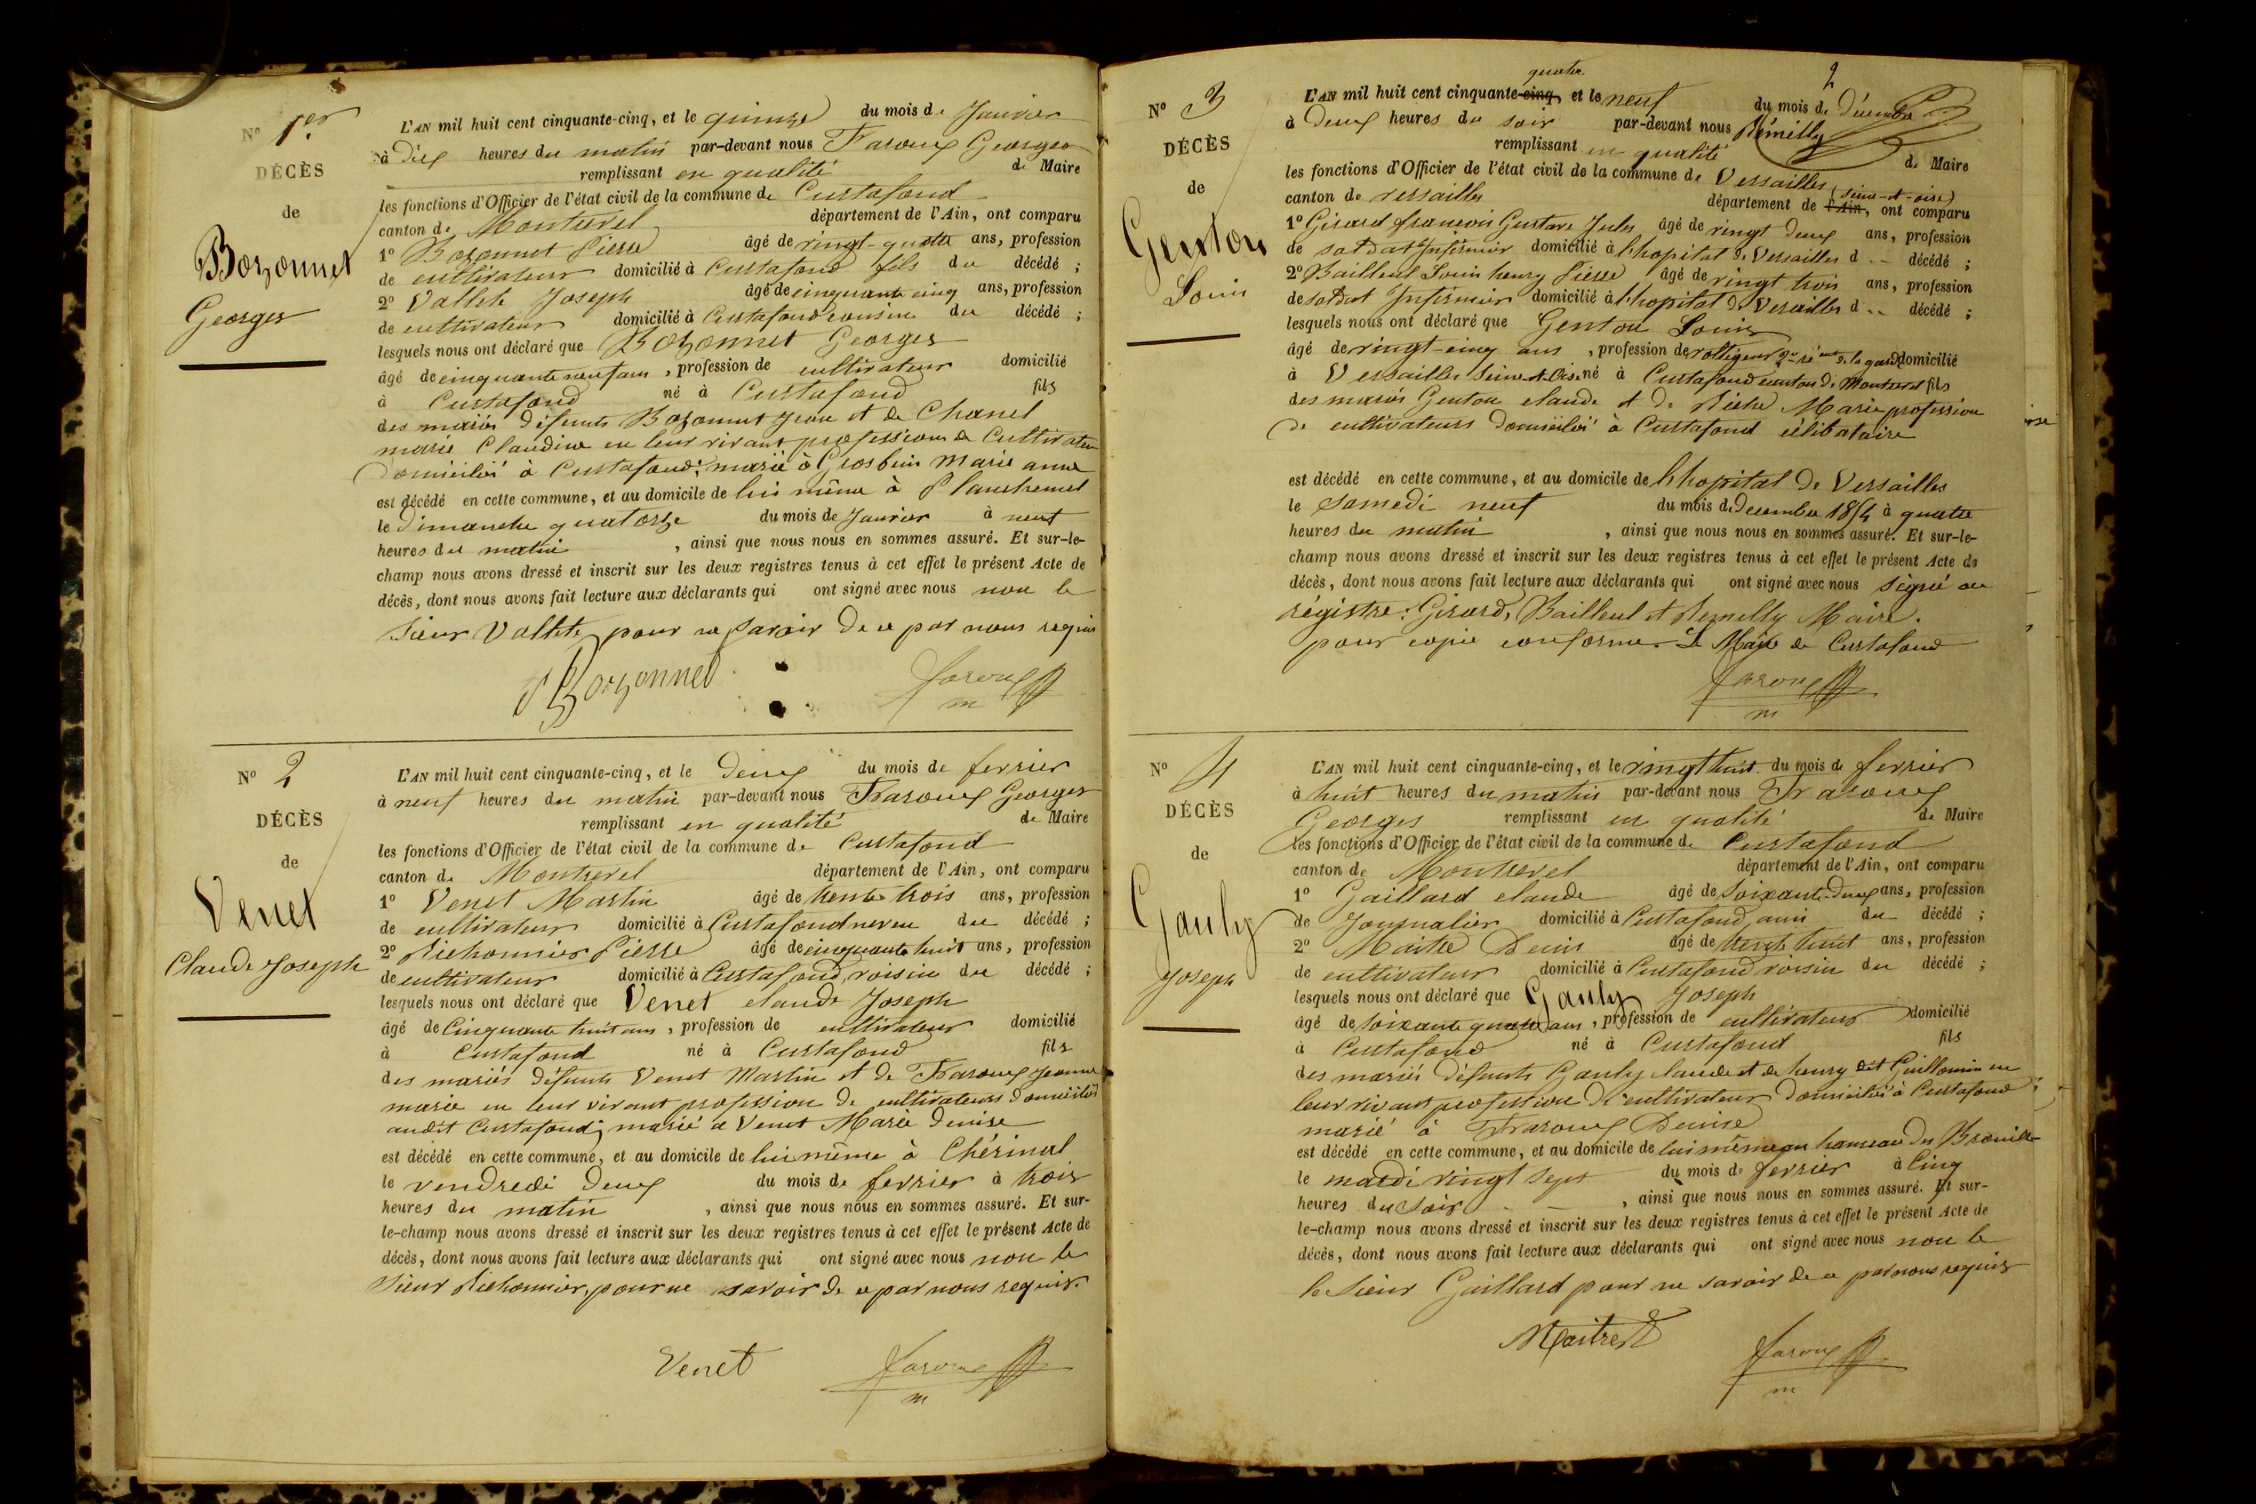 N° 1er
DÉCÈS
de
Bozonnet
Georges
L'AN mil huit cent cinquante-cinq, et le quinze du mois de Janvier
à dix heures du matin par-devant nous Faroux Georges
remplissant en qualité de Maire
les fonctions d'Officier de l'état civil de la commune de Curtafond
canton de Montrevel département de l'Ain, ont comparu
1° Bozonnet Pierre âgé de vingt-quatre ans, profession
de cultivateur domicilié à Curtafond fils du décédé ;
2° Vallet Joseph âgé de cinquante cinq ans, profession
de cultivateur domicilié à Curtafond cousin du décédé ;
lesquels nous ont déclaré que Bozonnet Georges
âgé de cinquante neuf ans, profession de cultivateur domicilié
à Curtafond né à Curtafond fils
des mariés défunts Bozonnet Jean et de Chanel
marie Claudine en leur vivant profession de Cultivateur
Domiciliés à Curtafond; marié à Grosbuis Marie anne
est décédé en cette commune, et au domicile de lui même à Planchemel
le Dimanche quatorze du mois de Janvier à neuf
heures du matin, ainsi que nous nous en sommes assuré. Et sur-le-
champ nous avons dressé et inscrit sur les deux registres tenus à cet effet le présent Acte de
décès, dont nous avons fait lecture aux déclarants qui ont signé avec nous non le
Sieur Vallet, pour ne savoir de ce par nous requis
Bozonnet faroux
m
N° 2
DÉCÈS
de
Venet
Claude Joseph
L'AN mil huit cent cinquante-cinq, et le Deux du mois de fevrier
à neuf heures du matin par-devant nous Faroux Georges
remplissant en qualité de Maire
les fonctions d'Officier de l'état civil de la commune de Curtafond
canton de Montrevel département de l'Ain, ont comparu
1° Venet Martin âgé de trente trois ans, profession
de cultivateur domicilié à Curtafond neveu du décédé ;
2° Pichonnier Pierre âgé de cinquante huit ans, profession
de cultivateur domicilié à Curtafond, voisin du décédé ;
lesquels nous ont déclaré que Venet claude Joseph
âgé de Cinquante huit ans, profession de cultivateur domicilié
à Curtafond né à Curtafond fils
des mariés défunts Venet Martin et de Faroux Jeanne
marie en leur vivant profession de cultivateurs domiciliés
audit Curtafond; marié a Venet Marie denise
est décédé en cette commune, et au domicile de lui même à Chérinal
le vendredi deux du mois de fevrier à trois
heures du matin, ainsi que nous nous en sommes assuré. Et sur-
le-champ nous avons dressé et inscrit sur les deux registres tenus à cet effet le présent Acte de
décès, dont nous avons fait lecture aux déclarants qui ont signé avec nous non le
Sieur Pichonnier, pour ne savoir de ce par nous requis.
Venet faroux
m
2
N° 3
DÉCÈS
de
Genton
Louis
quatre
L'AN mil huit cent cinquante-cinq, et le neuf du mois de Décembre
à Deux heures du soir par-devant nous Rémilly
remplissant en qualité de Maire
les fonctions d'Officier de l'état civil de la commune de Versailles
canton de versailles département de l'Ain, (seine-et-oise) ont comparu
1° Girard francois Gustave Jules âgé de vingt deux ans, profession
de soldat Infirmier domicilié à l'hopital de Versailles d -- décédé ;
2° Bailleul Louis henry Pierre âgé de vingt trois ans, profession
de soldat Infirmier domicilié à l'hopital de Versailles d -- décédé ;
lesquels nous ont déclaré que Genton Louis
âgé de vingt-cinq ans, profession de voltigeur 2e rément de la garde domicilié
à Versailles Seine et Oise né à Curtafond canton de Montrevel fils
des mariés Genton claude et de Marie profession
de cultivateurs domiciliés à Curtafond célibataire
est décédé en cette commune, et au domicile de l'hopital de Versailles
le samedi neuf du mois de Decembre 1854 à quatre
heures du matin, ainsi que nous nous en sommes assuré. Et sur-le-
champ nous avons dressé et inscrit sur les deux registres tenus à cet effet le présent Acte de
décès, dont nous avons fait lecture aux déclarants qui ont signé avec nous Signé au
régistre: Girard, Bailleul et Remilly Maire.
pour copie conforme. Le Maire de Curtafond
faroux
m
N° 4
DÉCÈS
de
Gauly
Joseph
L'AN mil huit cent cinquante-cinq, et le vingt huit du mois de fevrier
à huit heures du matin par-devant nous Faroux
Georges remplissant en qualité de Maire
les fonctions d'Officier de l'état civil de la commune de Curtafond
canton de Montrevel département de l'Ain, ont comparu
1° Gaillard claude âgé de soixante-deux ans, profession
de Journalier domicilié à Curtafond, ami du décédé ;
2° Maitre Denis âgé de trente huit ans, profession
de cultivateur domicilié à Curtafond voisin du décédé ;
lesquels nous ont déclaré que Gauly Joseph
âgé de soixante quatre ans, profession de cultivateur domicilié
à Curtafond né à Curtafond fils
des mariés défunts Gauly claude et de henry dit Guillomin en
leur vivant profession de cultivateur domiciliés à Curtafond;
marié à Faroux Denise
est décédé en cette commune, et au domicile de lui même au hameau des
le mardi vingt sept du mois de fevrier à Cinq
heures du soir, ainsi que nous nous en sommes assuré. Et sur-
le-champ nous avons dressé et inscrit sur les deux registres tenus à cet effet le présent Acte de
décès, dont nous avons fait lecture aux déclarants qui ont signé avec nous non le
le Sieur Gaillard pour ne savoir de ce par nous requis
Maitre D faroux
m